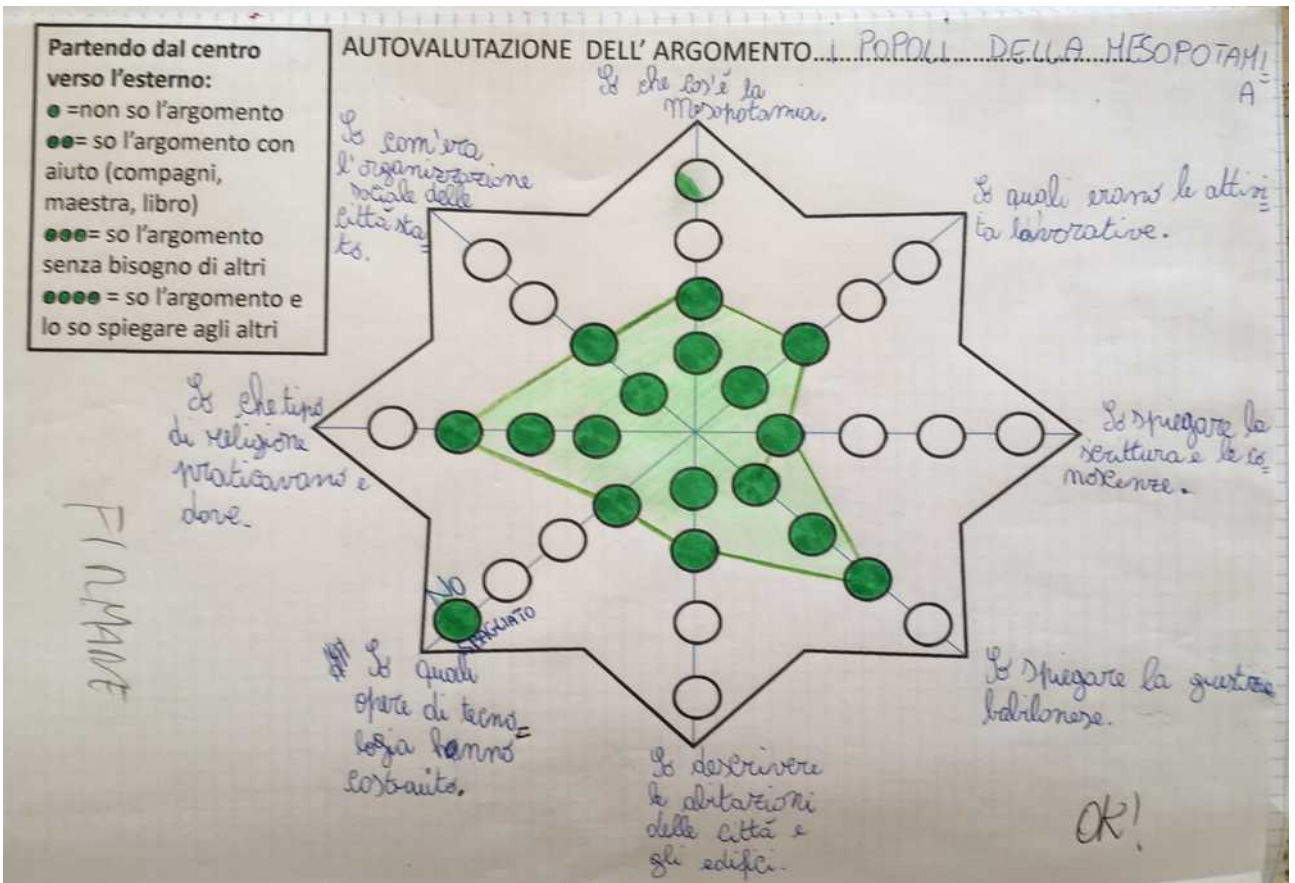 Partendo dal centro
verso l'esterno:
=non so l'argomento
= so l'argomento con
aiuto (compagni,
maestra, libro)
= so l'argomento
senza bisogno di altri
= so l'argomento e
lo so spiegare agli altri
AUTOVALUTAZIONE DELL' ARGOMENTO...I POPOLI DELLA MESOPOTAMI=
A
So che cos'é la
Mesopotamia.
So com'era
l'organizzazione
sociale delle
città sta=
to.
So quali erano le attivi=
tà lavorative.
So che tipo
di religione
praticavano e
dove.
So spiegare la
scrittura e le co=
noscenze.
NO
SBAGLIATO
So quali
opere di tecno=
logia hanno
costruito.
So descrivere
le abitazioni
delle città e
gli edifici.
So spiegare la giustizia
babilonese.
OK!